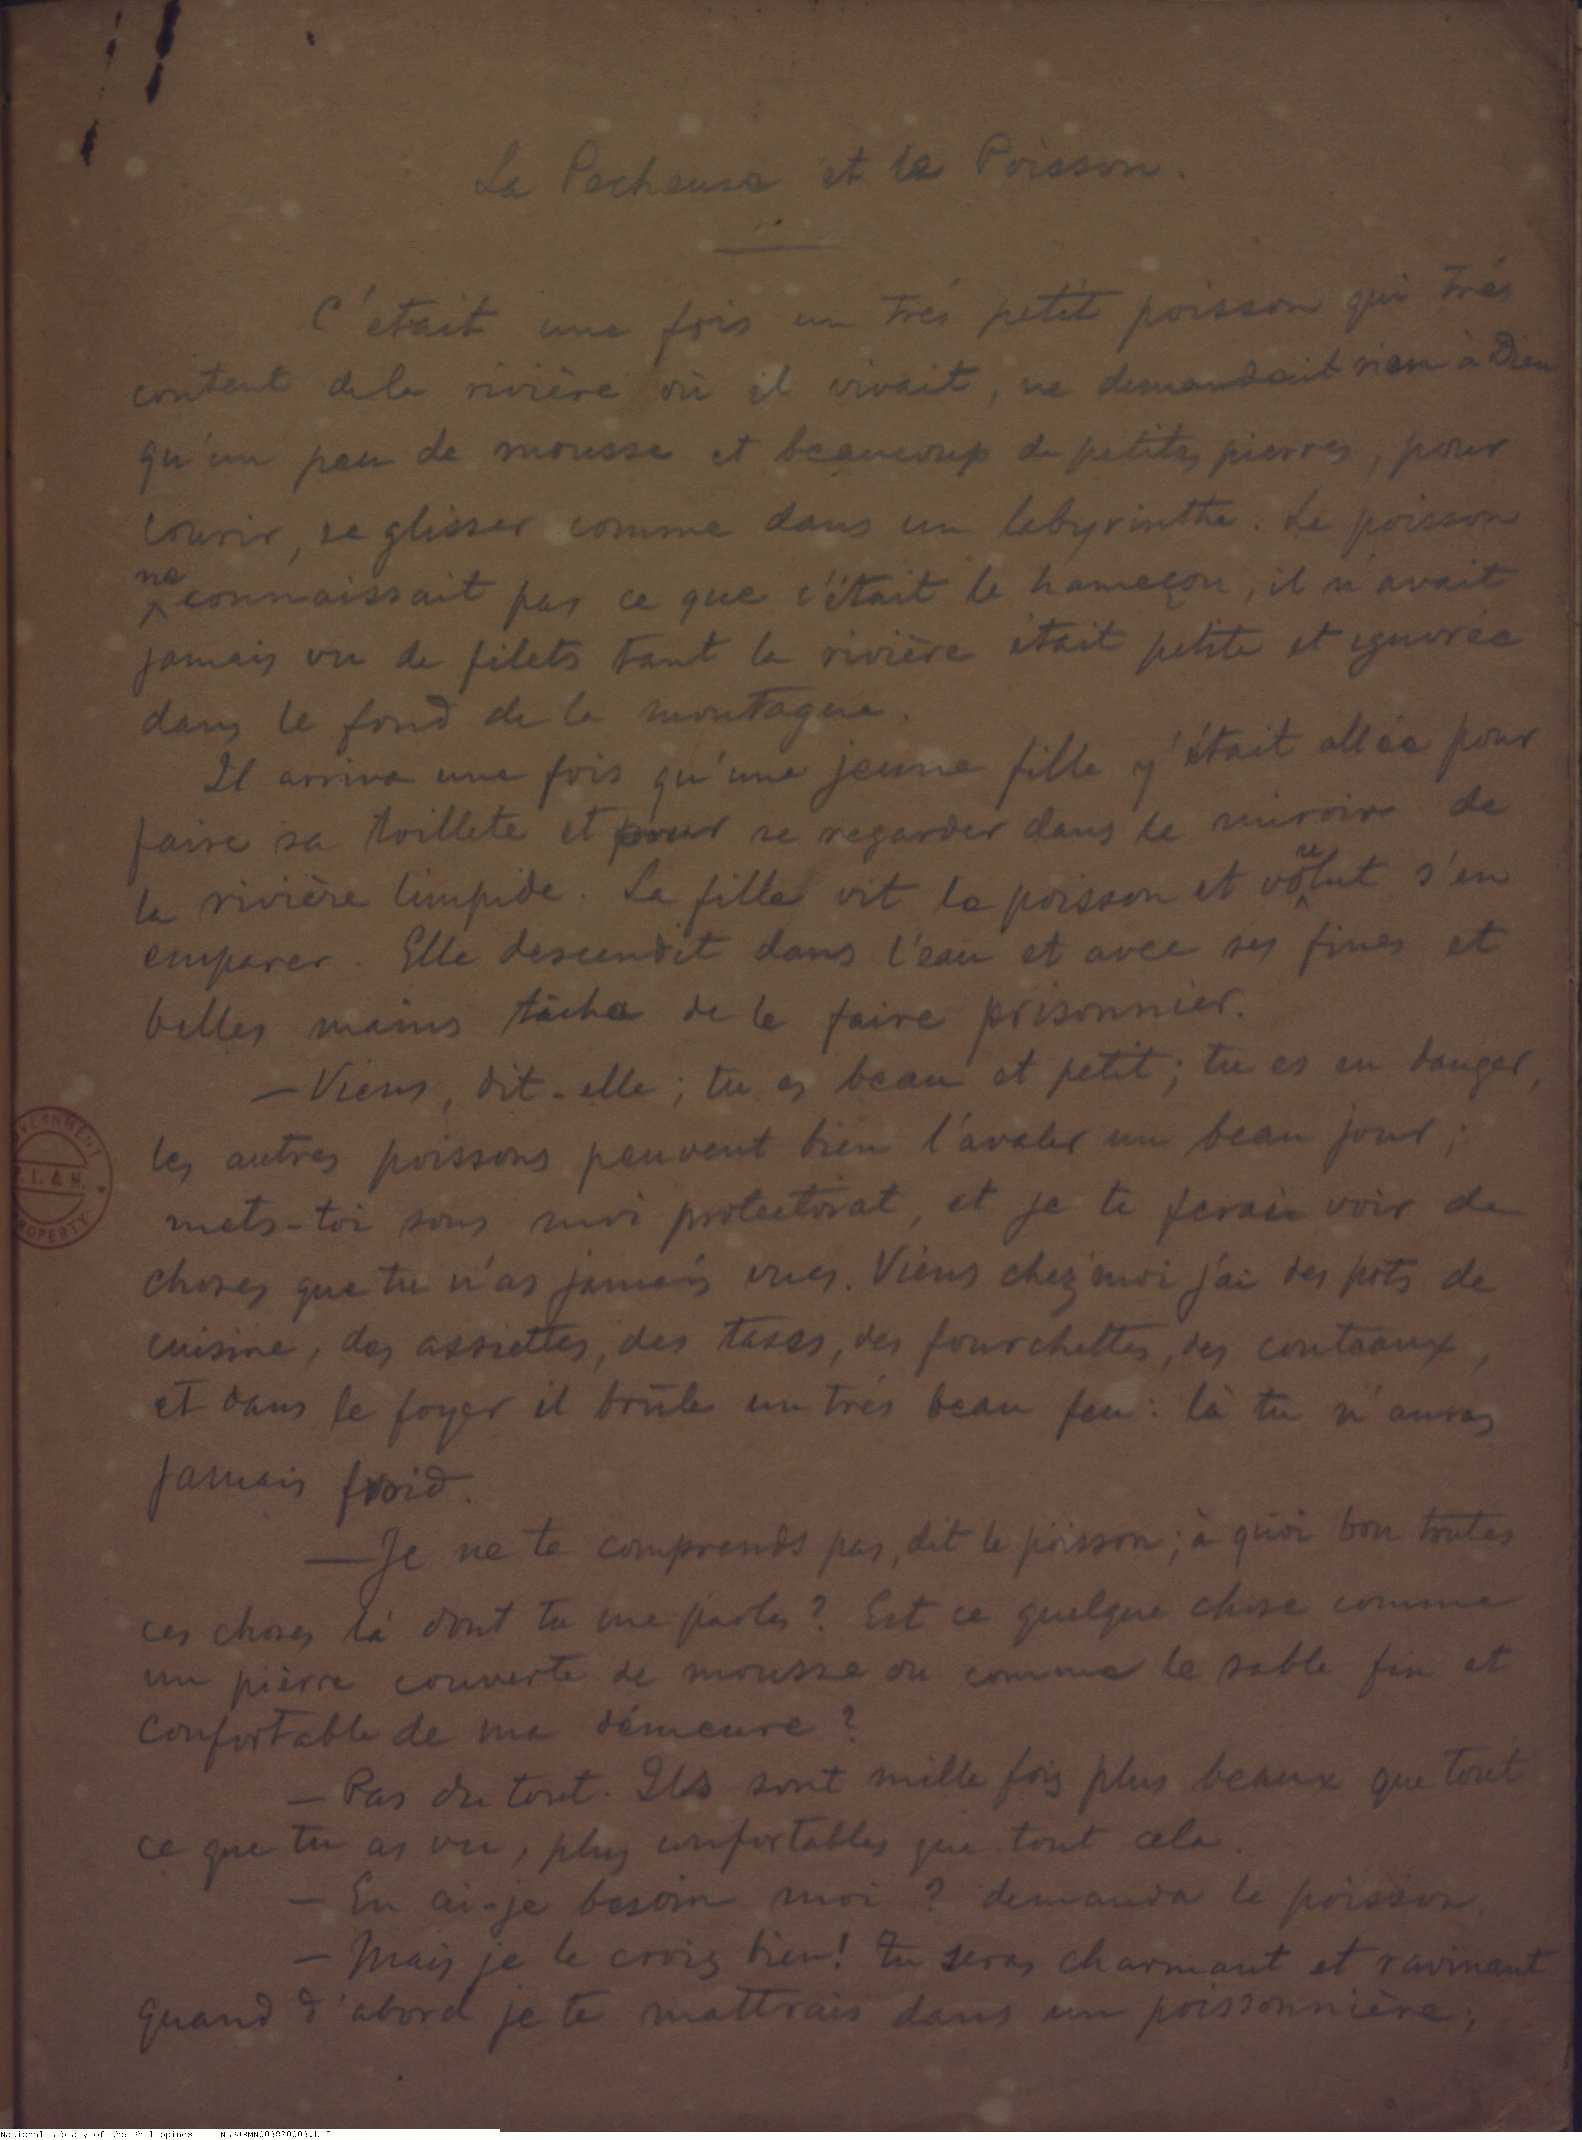 La Pecheuse et le Poisson.
C'était une fois un trés petit poisson qui trés
content de la rivière où il vivait, ne demandait rien à Dieu
qu'un peu de mousse et beaucoup de petites pierres, pour
courir, se glisser comme dans un labyrinthe. Le poisson
ne connaissait pas ce que c'était le hameçon, il n'avait
jamais vu de filets tant la rivière était petite et ignorée
dans le fond de la montagne.
Il arriva une fois qu'une jeune fille y'était allée pour
faire sa toillete et pour se regarder dans le miroir de
la rivière limpide. La fille vit le poisson et voulut s'en
emparer. Elle descendit dans l'eau et avec ses fines et
belles mains tâcha de le faire prisonnier.
— Viens, dit-elle; tu es beau et petit; tu es en danger,
les autres poissons peuvent bien t'avaler un beau jour;
mets-toi sous mon protectorat, et je te ferai voir de
choses que tu n'as jamais vues. Viens chez moi j'ai des pots de
cuisine, des assiettes, des tases, des fourchettes, des couteaux,
et dans le foyer il brûle un trés beau feu: là tu n'auras
jamais froid.
— Je ne te comprends pas, dit le poisson; à quoi bon toutes
ces choses là dont tu me parles? Est ce quelque chose comme
un pièrre couverte de mousse ou comme le sable fin et
confortable de ma démeure?
— Pas du tout. Ils sont mille fois plus beaux que tout
ce que tu as vu, plus confortables que tout cela.
— En ai-je besoin moi? demanda le poisson.
— Mais je le crois bien! Tu seras charmant et ravinant
quand d'abord je te mettrais dans un poissonnière;
GOVERNMENT
P.I. & H.
PROPERTY
National Library of the Philippines